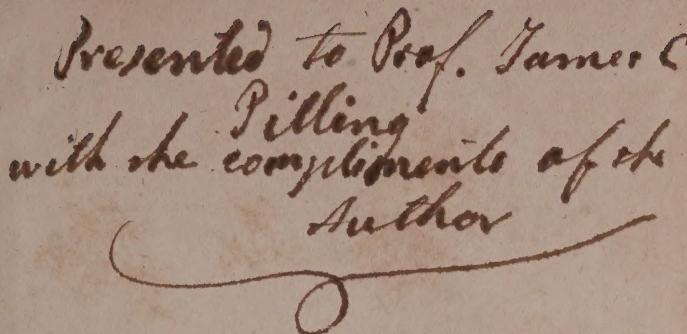 Presented to Prof. James C
Pilling
with the compliments of the
Author